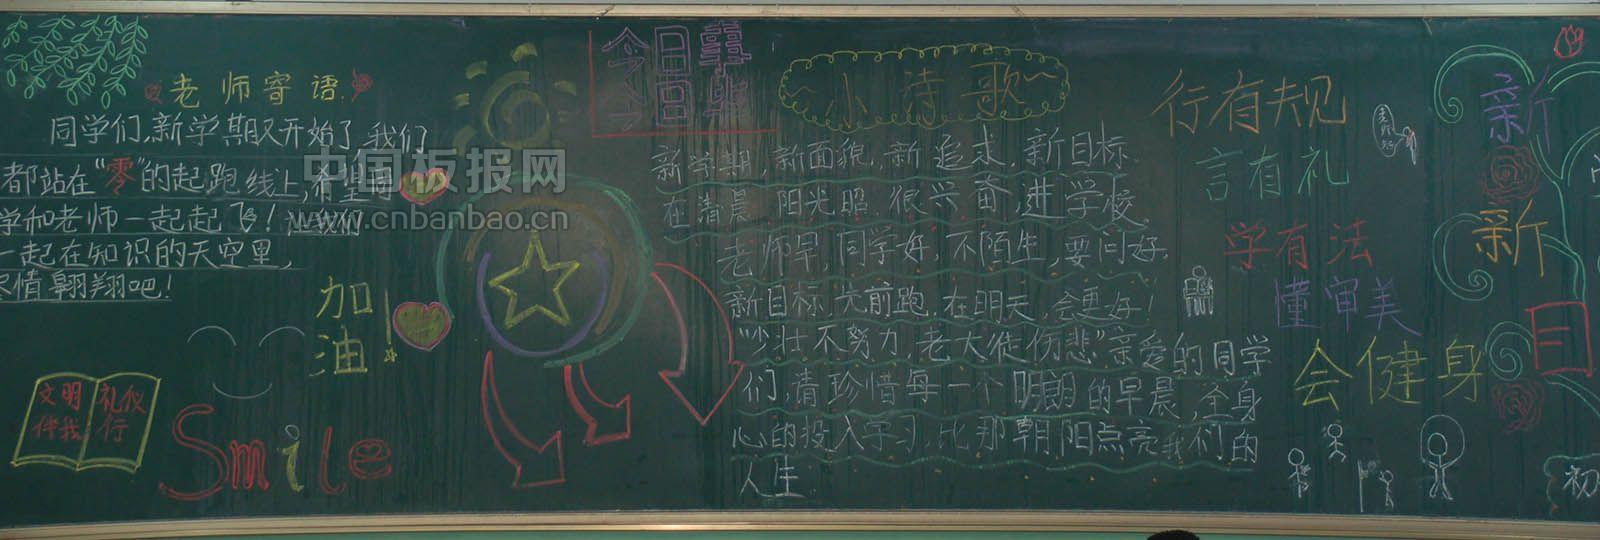 老师寄语
同学们,新学期又开始了,我们
都站在“零”的起跑线上,希望同
学和老师一起起飞!让我们
一起在知识的天空里,
尽情翱翔吧!
加油!
文明 礼仪
伴我 行
Smile
中国板报网
www.cnbanbao.cn
今日
小诗歌
新学期,新面貌,新追求,新目标.
在清晨,阳光照,很兴奋,进学校.
老师早,同学好,不陌生,要问好.
新目标,先前跑,在明天,会更好!
“少壮不努力,老大徒伤悲”亲爱的同学
们,请珍惜每一个明朗的早晨,全身
心的投入学习,比那朝阳点亮我们的
人生.
行有规
言有礼
学有法
懂审美
会健身
新
新
目
初